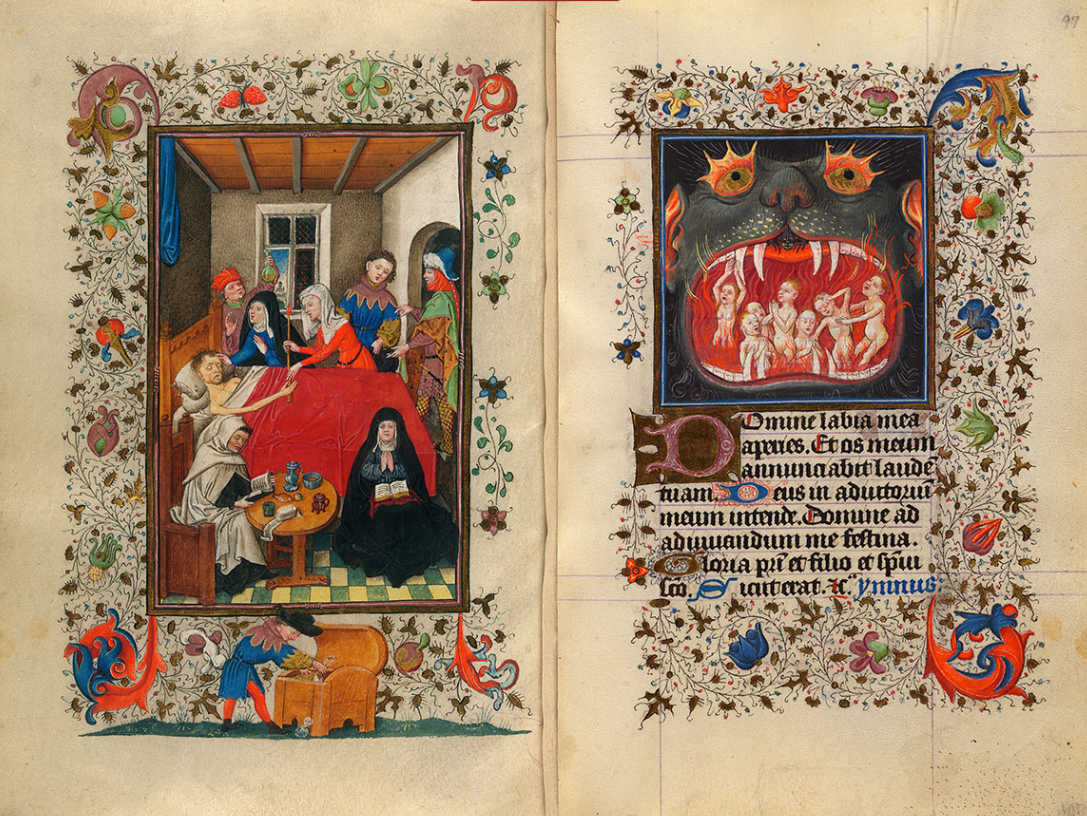 97
Domine labia mea
aperies. Et os meum
annunciabit laude
tuam. Deus in adiutoriū
meum intende. Domine ad
adiuuandum me festina.
Gloria pr̄i et filio et sp̄ui
sc̄o. Sicut erat. ⁊c̄. ymnus.